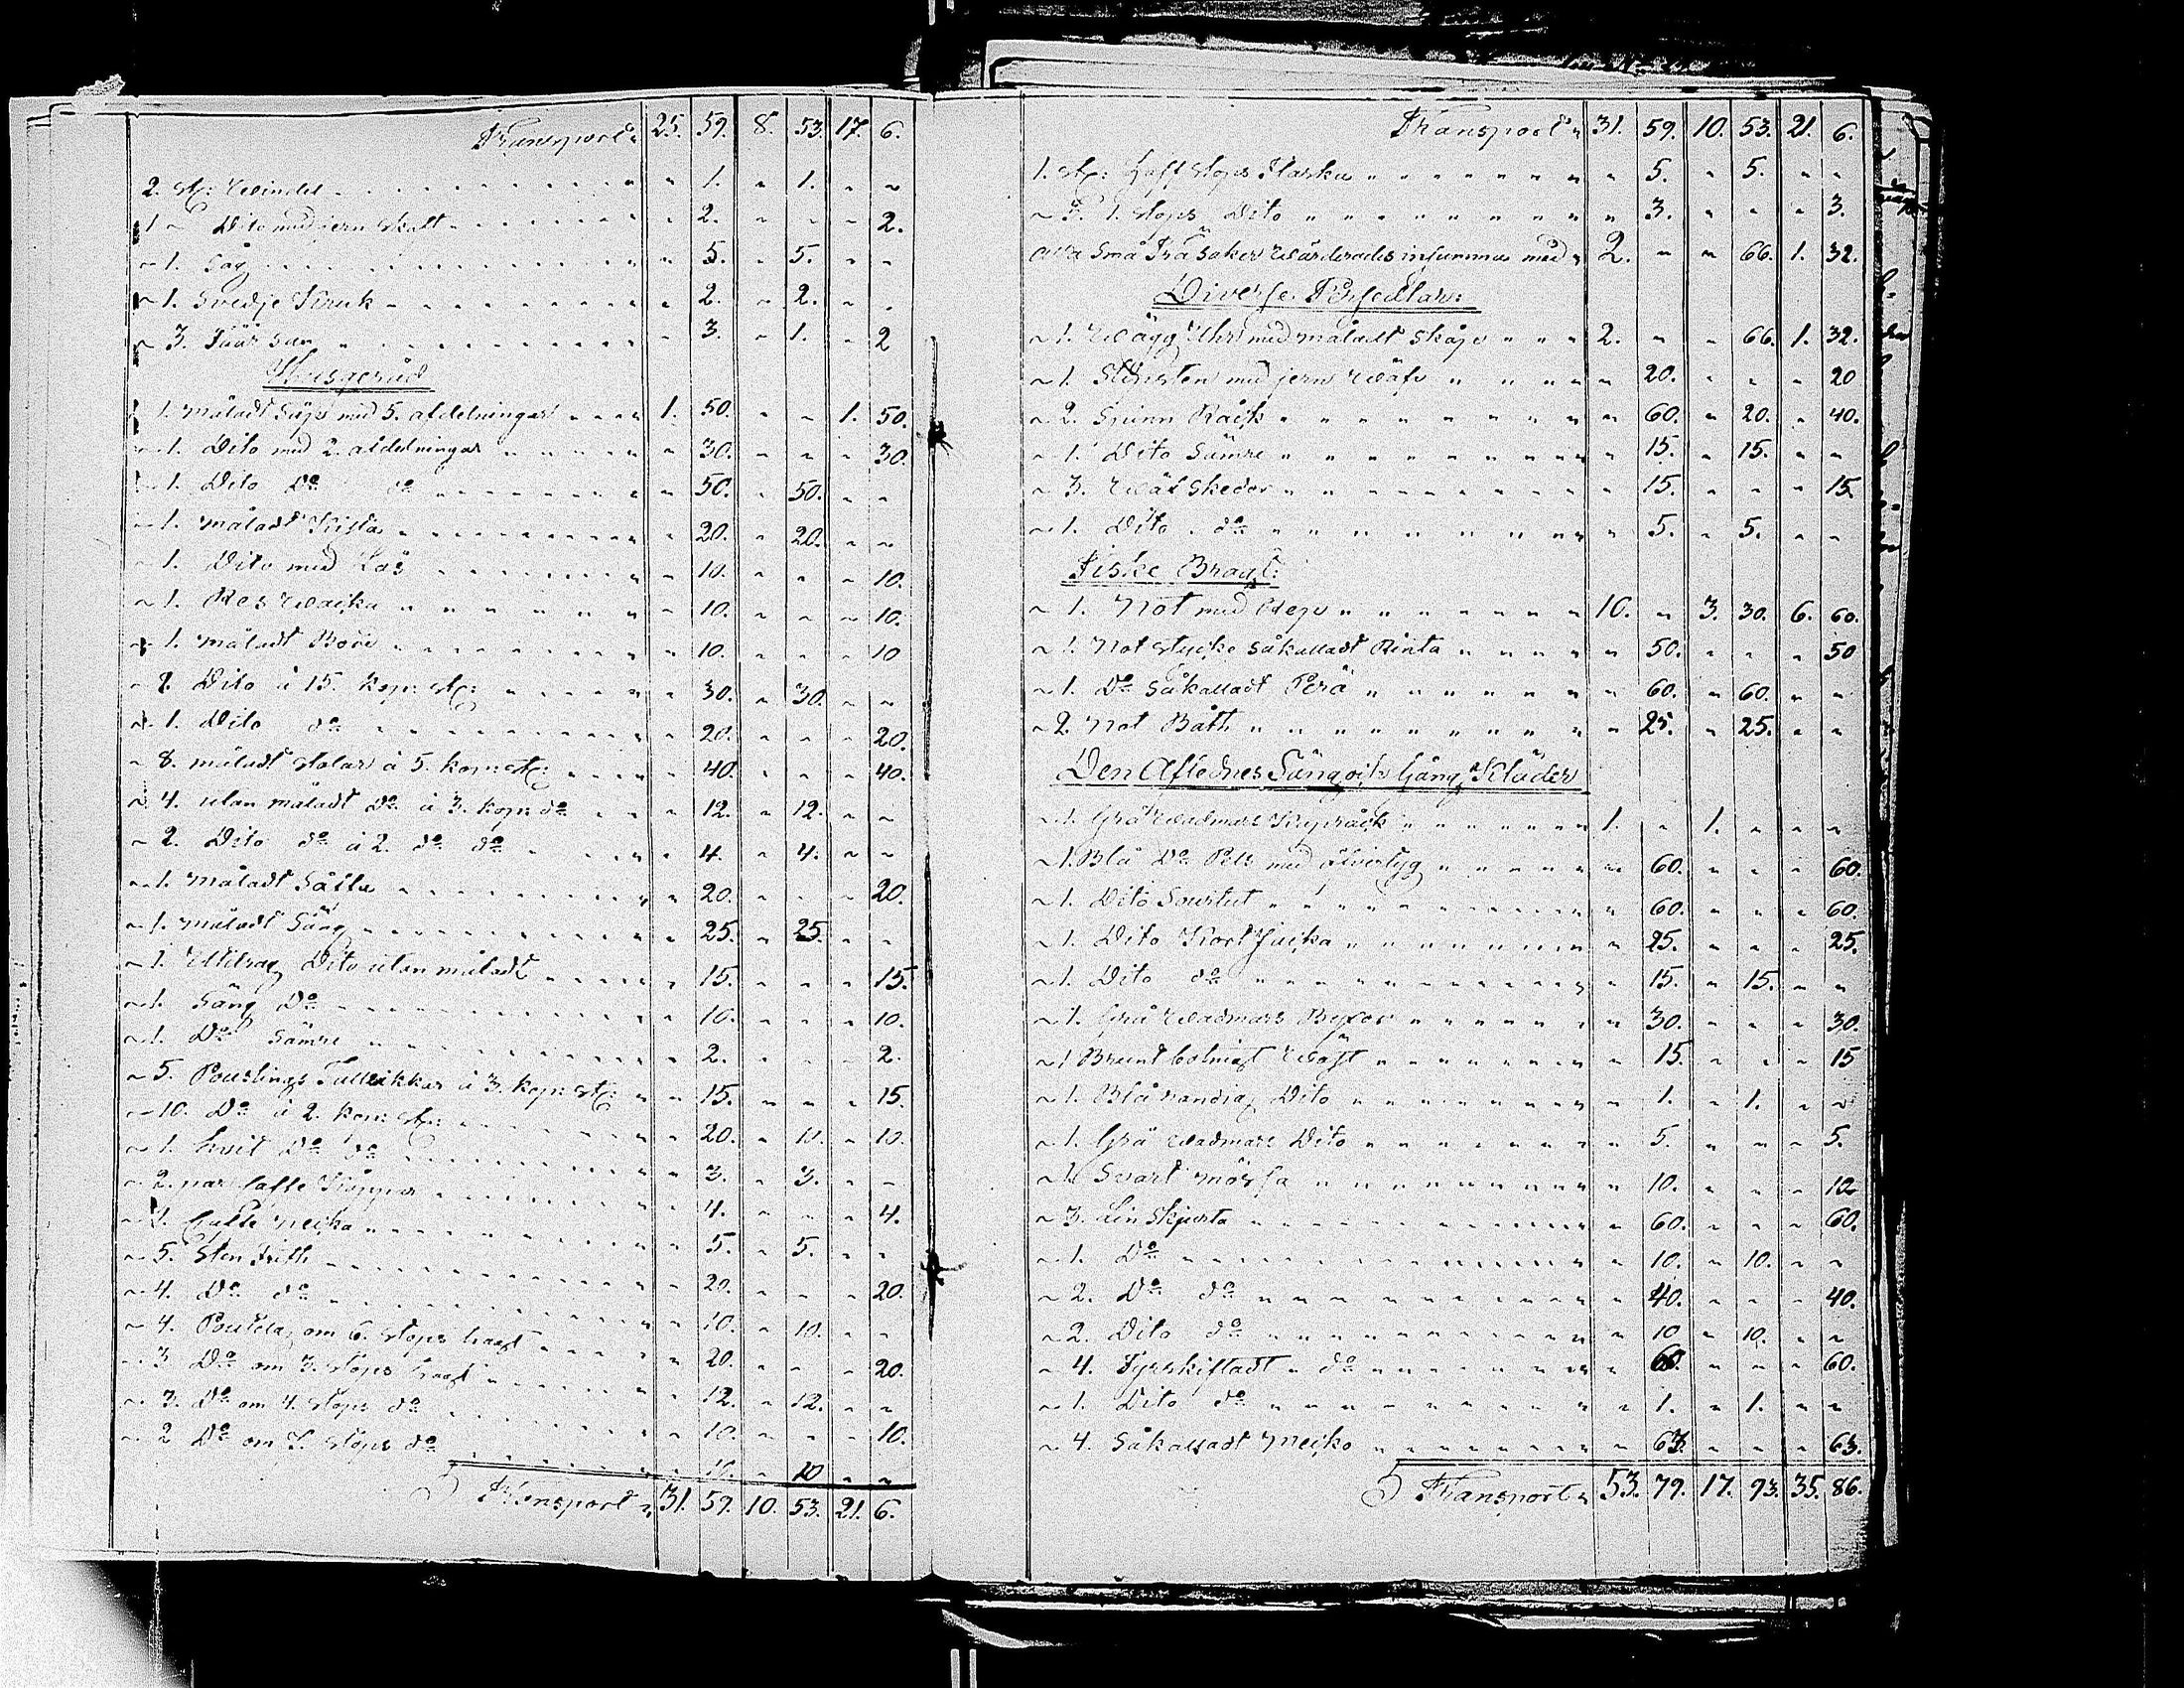 Transport 25. 59. 8. 53. 17. 6.
2. st: Windel 1. 1.
1 Dito med jern skaft 2. 2.
1. Såg 5. 5.
1. Svedje Kruk 2. 2.
3. 3. 1. 2
Husgeråd
1. måladt med 5. afdelningar 1. 50. 1. 50.
1. Dito med 2. afdelningar 30. 30.
1. Dito Do do 50. 50.
1. måladt Kista 20. 20.
1. Dito med Lås 10. 10.
1. Res 10. 10.
1. måladt Bord 10. 10
2. Dito à 15. kop: st: 30. 30.
1. Dito do 20. 20.
8. måladt stolar à 5. kop: st: 40. 40.
4. utan måladt Do à 3. kop: do 12. 12.
2. Dito do à 2. do do 4. 4.
1. måladt 20. 20.
1. måladt Säng 25. 25.
1. Utdrag Dito utan måladt 15. 15.
1. Säng Do 10. 10.
1. Do Sämre 2. 2.
5. à 3. kop: st: 15. 15.
10. Do à 2. kop: st: 20. 10. 10.
1. hvit Do do 3. 3.
2. par Caffe Koppar 4. 4.
1. Caffe 5. 5.
5. Sten 20. 20.
4. Do do 10. 10.
4. om 6. stops 20. 20.
3. Do om 3. stops 12. 12.
3. Do om 4. stops do 10. 10.
2 Do om stops do 10. 10
Transport 31. 59. 10. 53. 21. 6.
Transport 31. 59. 10. 53. 21. 6.
1. st: Half stops Flaska 5. 5.
1. stops Dito 3. 3.
Alla Små Trä Saker Wärderades insumma med 2. 66. 1. 32.
Diverse Persedlar:
1. Wägg Uhr med måladt skåp 2. 66. 1. 32.
1. med jern 20. 20
2. Spinn Råck 60. 20. 40.
1. Dito Sämre 15. 15.
3. Wäf Skedor 15. 15.
1. Dito do 5. 5.
Fiske Bragt:
1. Not med 10. 3. 30. 6. 60.
1. Not stycke såkalladt Rinta 50. 50
1. Do såkalladt Perä 60. 60.
2. Not Båth 25. 25.
Den Aflednes Säng och Gång Kläder
1. Grå Wadmars Kapråck 1. 1.
1. Blå Do Pels med 60. 60.
1. Dito Sourtut 60. 60.
1. Dito Kort Jacka 25. 25.
1. Dito do 15. 15.
1. Grå Wadmars Byxor 30. 30.
1 Brunt Wäst 15. 15
1. Blå randig Dito 1. 1.
1. Grå Wadmars Dito 5. 5.
1. Svart mössa 10. 10
3. Lin Skjorta 60. 60.
1. Do 10. 10.
2. Do do 40. 40.
2. Dito do 10 10.
4. Fyrskiftadt do 60. 60.
1. Dito do 1. 1.
4. Såkalladt 63. 63.
Transport 53. 79. 17. 93. 35. 86.